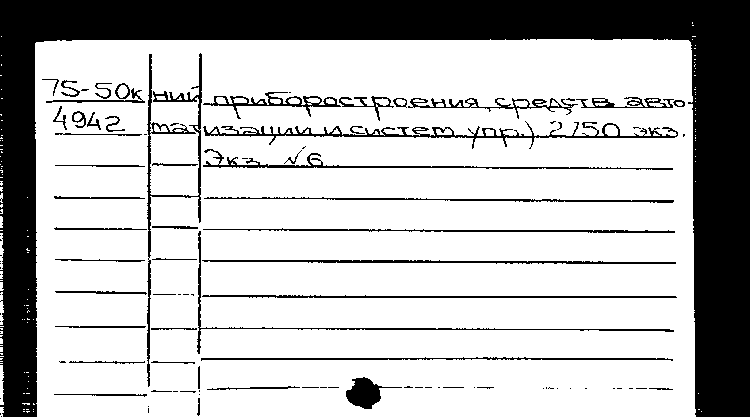 75-50к ний приборостроения, средств авто-
4942 матизации и систем упр.) 2750 экз.
Экз. №6